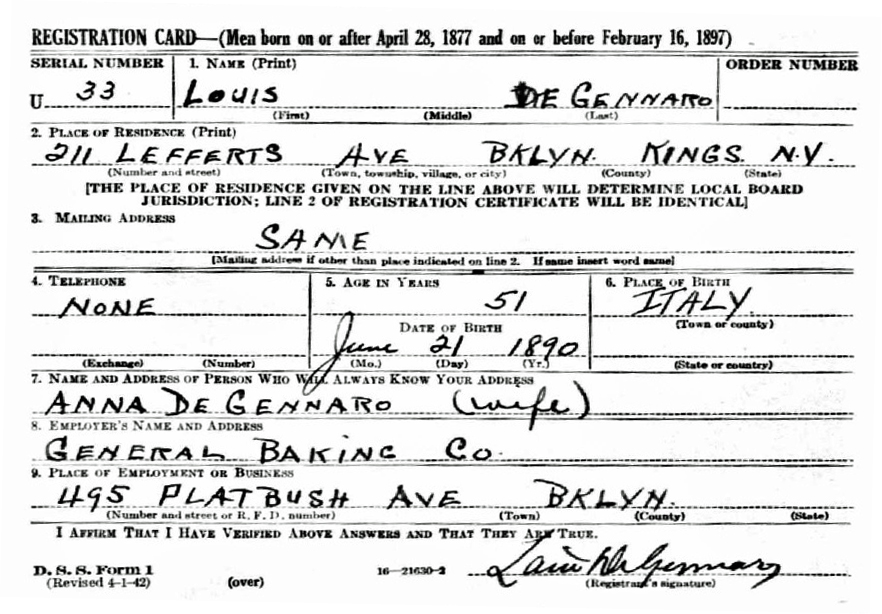 REGISTRATION CARD—(Men born on or after April 28, 1877 and on or before February 16, 1897)
SERIAL NUMBER 1. NAME (Print) ORDER NUMBER
U 33 LOUIS DE GENNARO
(First) (Middle) (Last)
2. PLACE OF RESIDENCE (Print)
211 LEFFERTS AVE BKLYN. KINGS. N.Y.
(Number and street) (Town, township, village, or city) (County) (State)
[THE PLACE OF RESIDENCE GIVEN ON THE LINE ABOVE WILL DETERMINE LOCAL BOARD
JURISDICTION; LINE 2 OF REGISTRATION CERTIFICATE WILL BE IDENTICAL]
3. MAILING ADDRESS
SAME
[Mailing address if other than place indicated on line 2. If same insert word same]
4. TELEPHONE 5. AGE IN YEARS 6. PLACE OF BIRTH
NONE 51 ITALY
DATE OF BIRTH (Town or county)
June 21 1890
(Exchange) (Number) (Mo.) (Day) (Yr.) (State or country)
7. NAME AND ADDRESS OF PERSON WHO WILL ALWAYS KNOW YOUR ADDRESS
ANNA DE GENNARO (wife)
8. EMPLOYER'S NAME AND ADDRESS
GENERAL BAKING CO.
9. PLACE OF EMPLOYMENT OR BUSINESS
495 FLATBUSH AVE BKLYN.
(Number and street or R. F. D. number) (Town) (County) (State)
I AFFIRM THAT I HAVE VERIFIED ABOVE ANSWERS AND THAT THEY ARE TRUE.
D. S. S. Form 1
(Revised 4-1-42) (over) 16—21630-2 Louis De Gennaro
(Registrant's signature)